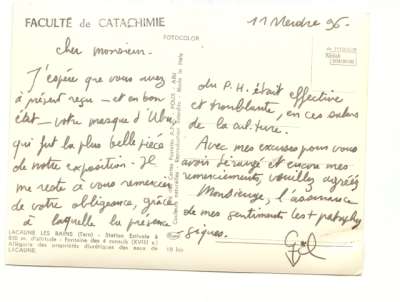 FACULTÉ de CATACHIMIE
11 Merdre 96.
FOTOCOLOR
cher monsieur.
J'espère que vous avez
à présent reçu — et en bon
état — votre masque d'Ubu,
qui fut la plus belle pièce
de notre exposition. Il
me reste à vous remercier
de votre obligeance, grâce
à laquelle la présence
du P.H. était effective
et troublante, en ces salons
de la culture.
Avec mes excuses pour vous
avoir dérangé et encore mes
remerciements, veuillez agréer,
Monsieur, l'assurance
de mes sentiments les + pataphy
siques.
LACAUNE LES BAINS (Tarn) - Station Estivale à
d'altitude - Fontaine des 4
Allégorie des propriétés diurétiques des eaux de
LACAUNE.